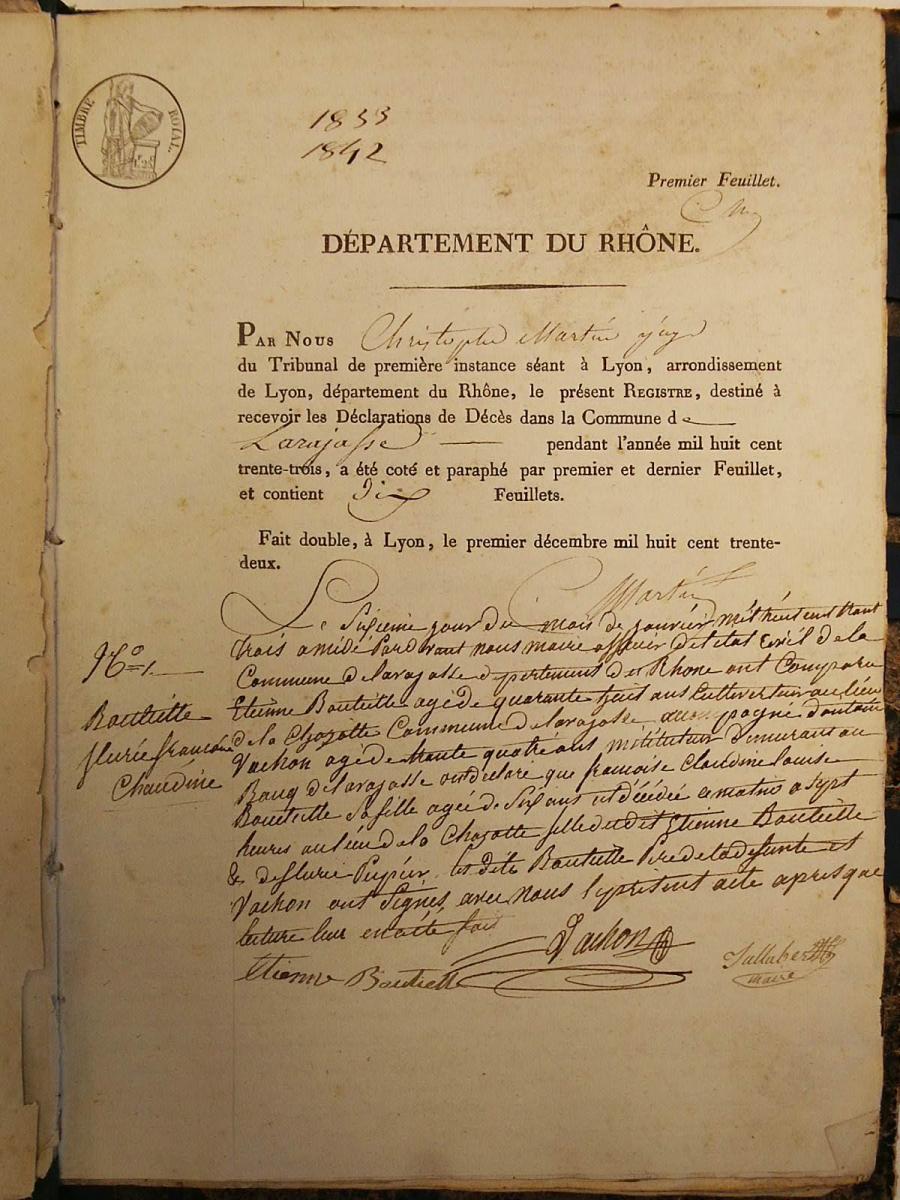 TIMBRE ROYAL.
1833
1842
Premier Feuillet.
DÉPARTEMENT DU RHÔNE.
PAR NOUS Christophe Martin juge
du Tribunal de première instance séant à Lyon, arrondissement
de Lyon, département du Rhône, le présent REGISTRE, destiné à
recevoir les Déclarations de Décès dans la Commune de
Larajasse pendant l'année mil huit cent
trente-trois, a été coté et paraphé par premier et dernier Feuillet,
et contient Dix Feuillets.
Fait double, à Lyon, le premier décembre mil huit cent trente-
deux.
Martin
Le Sixieme jour du mois de janvier mil huit cent trant
trois a midi Pardevant nous maire officier de l'etat Civil de la
Commune de larajasse departement du Rhône ont Comparu
Etienne Bouteille agé de quarante huit ans Cultivateur au lieu
de la Chazotte Commune de larajasse accompagné d'antoine
Vachon agé de trante quatre ans instituteur demurant au
Bourg de larajasse ont declaré que francoise Claudine louise
Bouteille sa fille agée de Six ans est décédée ce matin a sept
heures au lieu de la Chazotte fille dudit Etienne Bouteille
& de flurie Pupier les dits Bouteille Pere de la defunte et
Vachon ont Signés avec nous le present acte apres que
lecture leur en a été fait
N°=1
Bouteille
flurie francoise
Chaudine
Vachon
Etienne Bouteille
maire